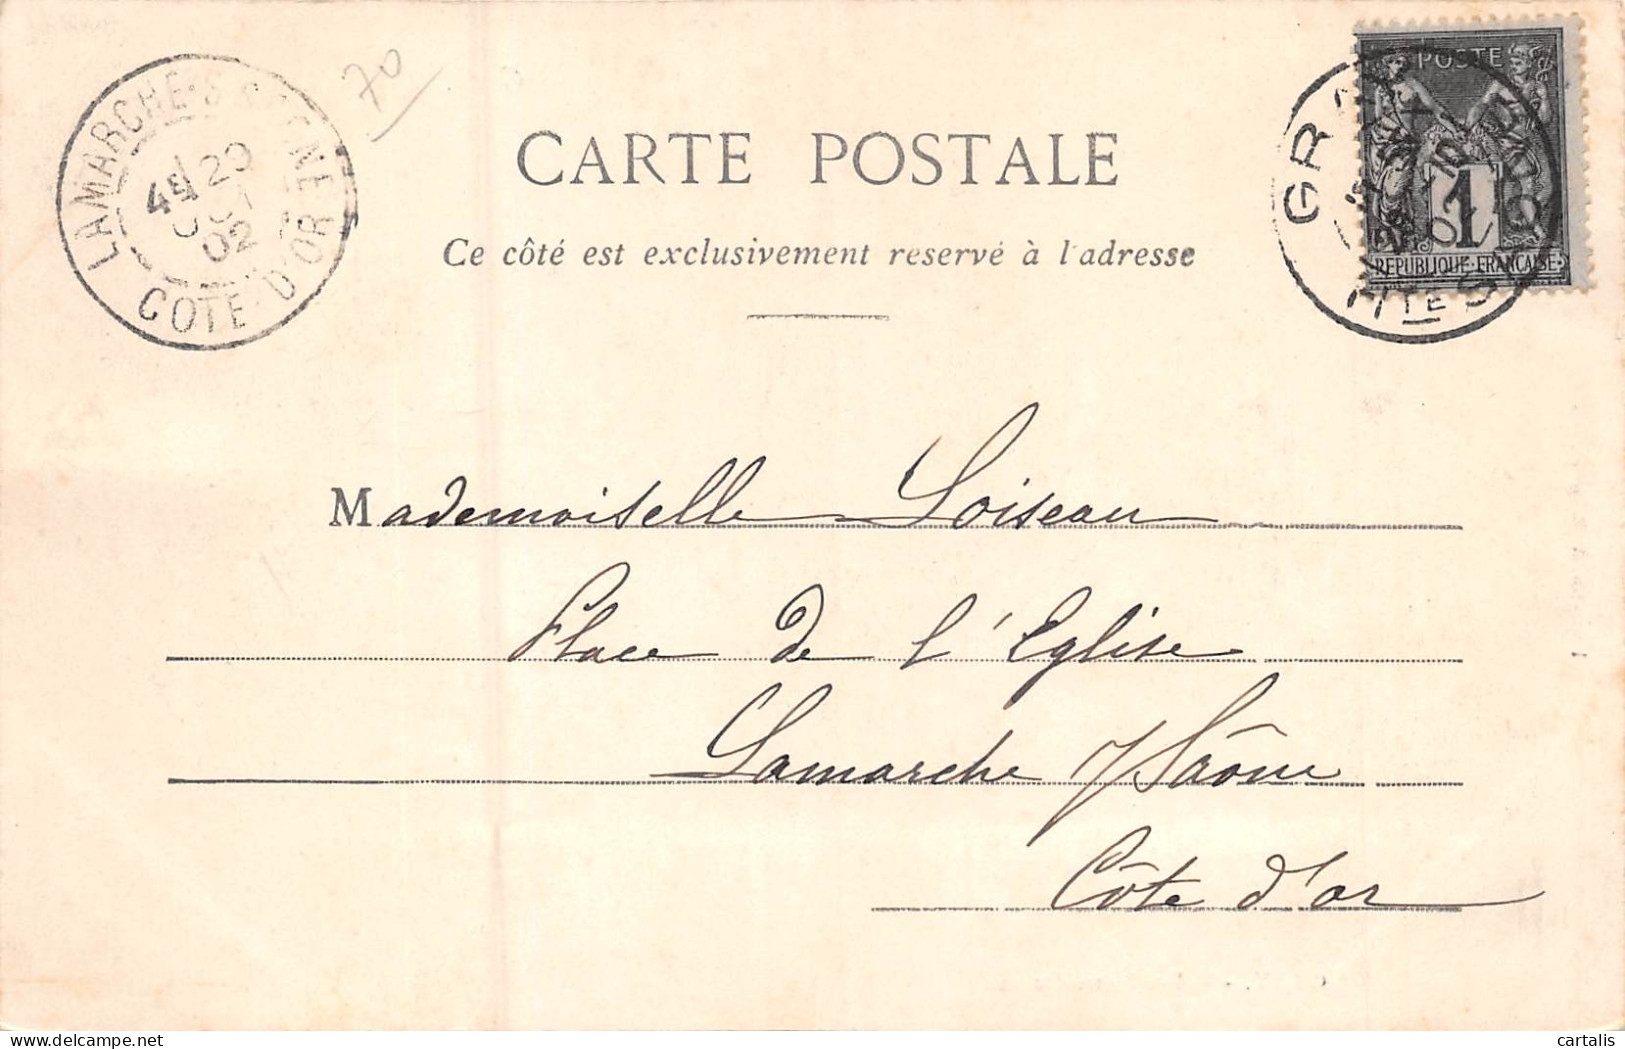 LAMARCHE-S-SAONE
4E 20
02
COTE-D'OR
70
CARTE POSTALE
Ce côté est exclusivement reservé à l'adresse
POSTE
1
REPUBLIQUE FRANCAISE
Mademoiselle Loiseau
Place de l'Eglise
Lamarche s/Saône
Côte d'or
cartalis